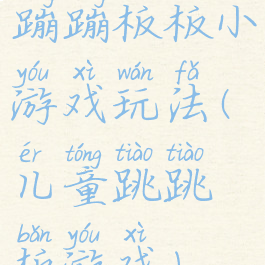 蹦蹦板板小
yóu xì wán fǎ
游戏玩法(
ér tóng tiào tiào
儿童跳跳
bǎn yóu xì
板游戏)